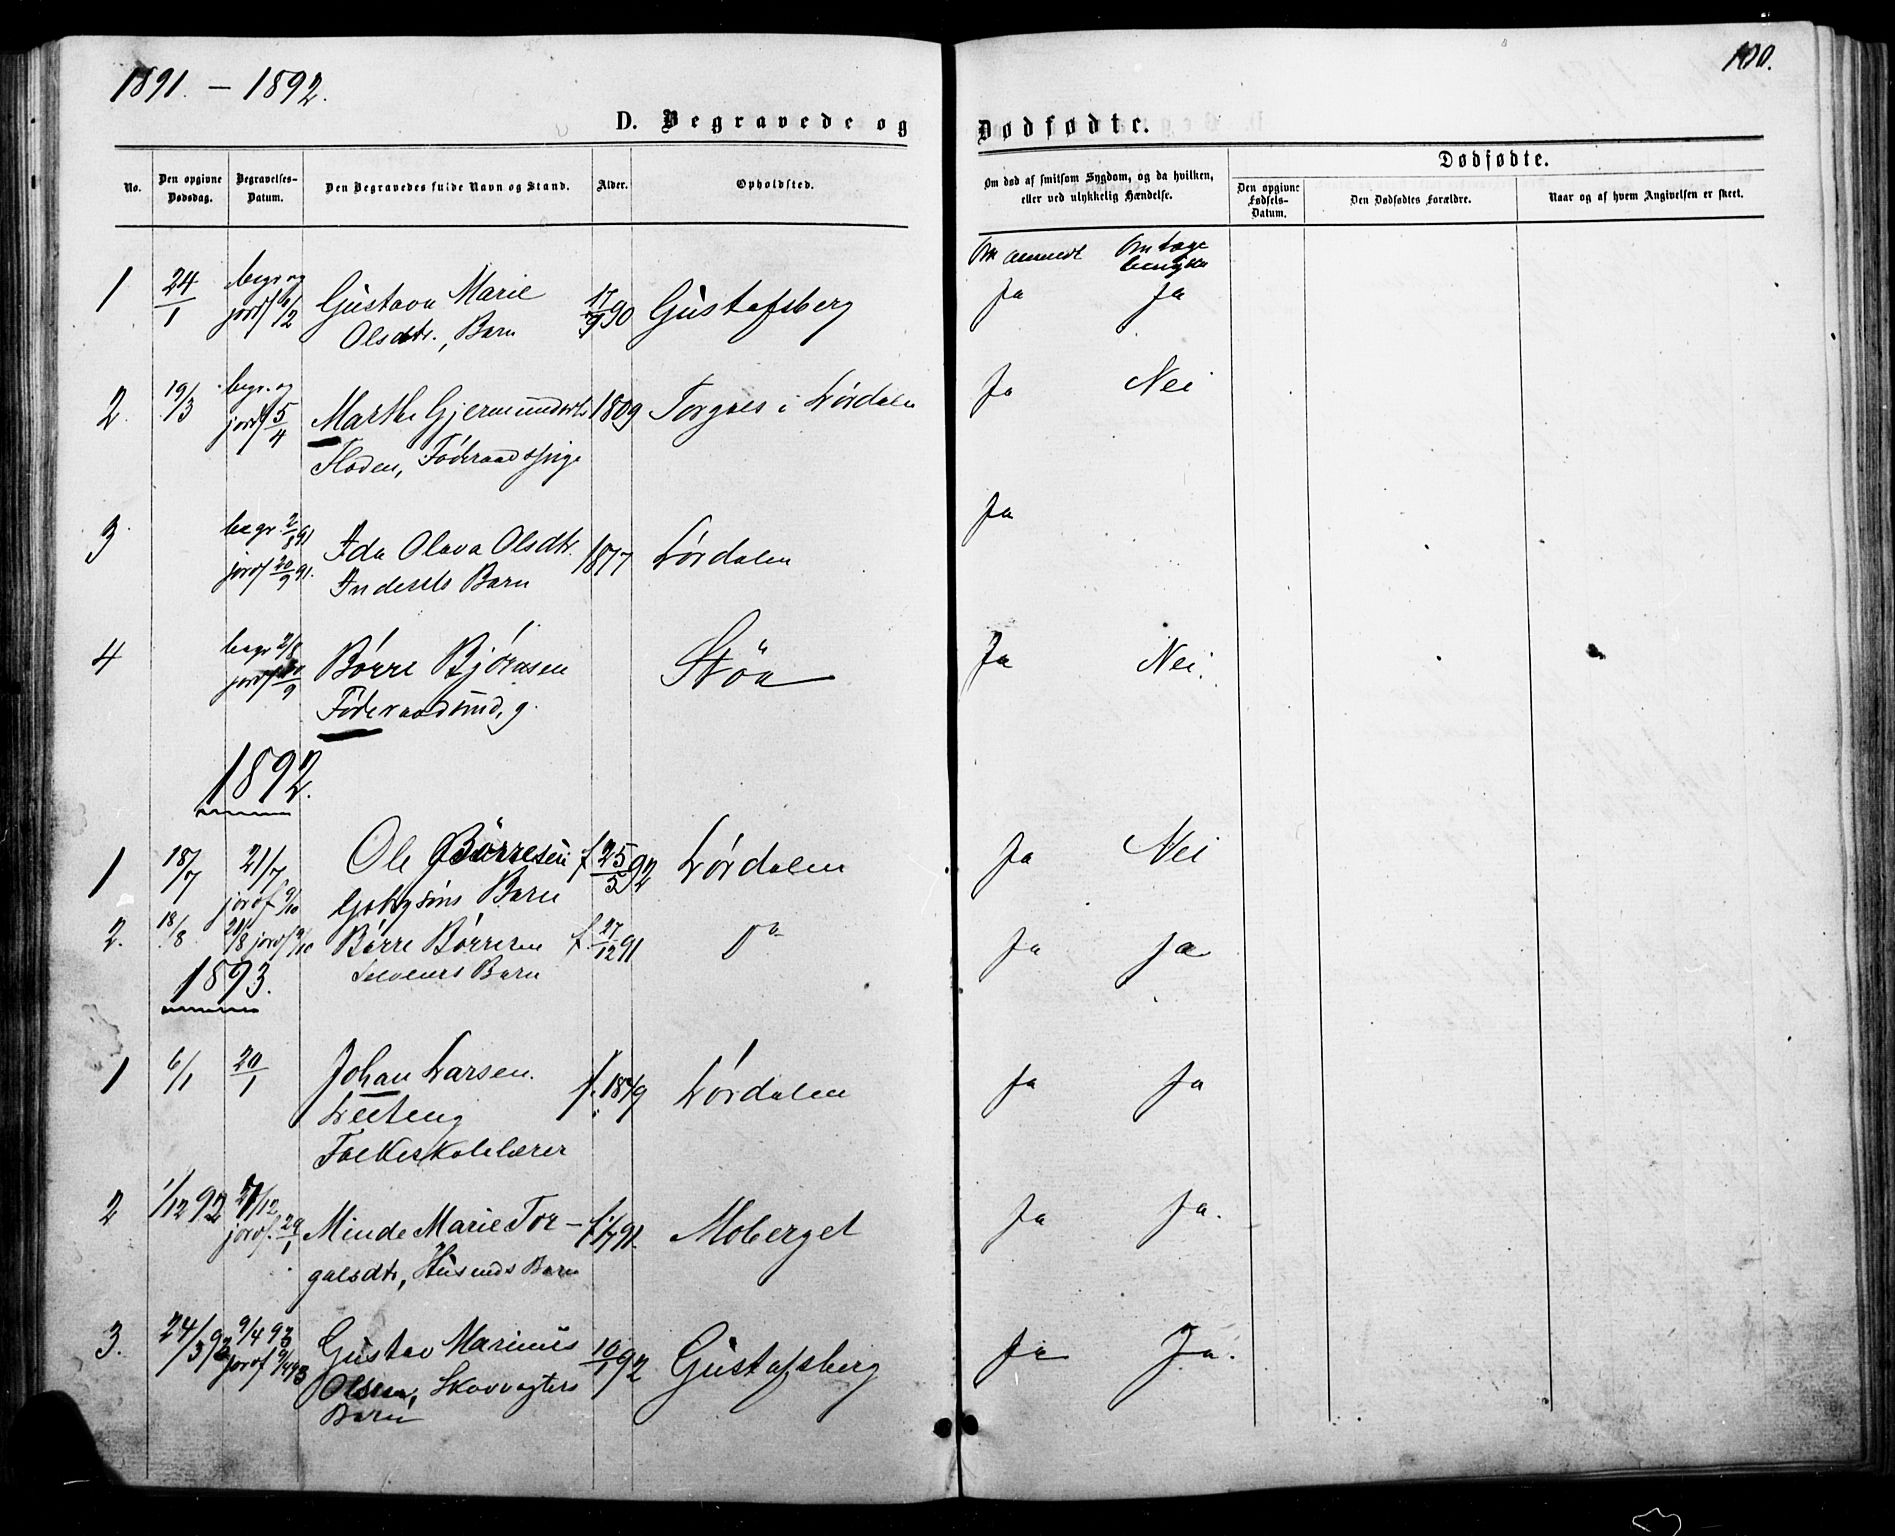 1891. – 1892.
100.
D. Begravede og Dødfødte.
No.
Den opgivne Dødsdag.
Begravelses-Datum.
Den Begravedes fulde Navn og Stand.
Alder.
Opholdsted.
Om død af smitsom Sygdom, og da hvilken,
eller ved ulykkelig Hændelse.
Dødfødte.
Den opgivne Fødsels-Datum.
Den Dødfødtes Forældre.
Naar og af hvem Angivelsen er skeet.
Om anmeldt
1 24/1 begr. og Gustava Marie 17/9 90 Gustafsberg Ja Ja
jordf 6/2 Olsdtr., Barn
2. 19/3 begr. og Marthe Gjermundsdtr 1809 Torgals i Lørdalen Ja Nei
jordf 5/4
Floden, Føderaadspige
3 begr. 2/8 91 Ida Olava Olsdtr. 1877 Lørdalen Ja
jordf 20/9 91. Barn
4 begr 2/8 Børre Bjørnsen Støa Ja Nei.
jordf 20/9
Føderaadsmd, g.
1892.
1 18/7 21/7 Ole Børresen f 25/5 92 Lørdalen Ja Nei
jordf 9/10 Barn
2. 18/8 21/8 jordf 9/10 Børre Børresen f. 27/12 91 Do Ja Ja
Barn
1893.
1 6/1 20/1 Johan Larsen. f. 1849 Lørdalen Ja Ja
Folkeskolelærer
2 1/12 92 27/12 Minde Marie Tor- f. 1/7 91. Moberget Ja Ja.
jordf. 29/1
galsdtr, Husmds Barn
3. 24/3 93 9/4 93 Gustav Marinus 10/1 92 Gustafsberg Ja Ja.
jordf 9/4 93
Olsen, Skovvogters
Barn